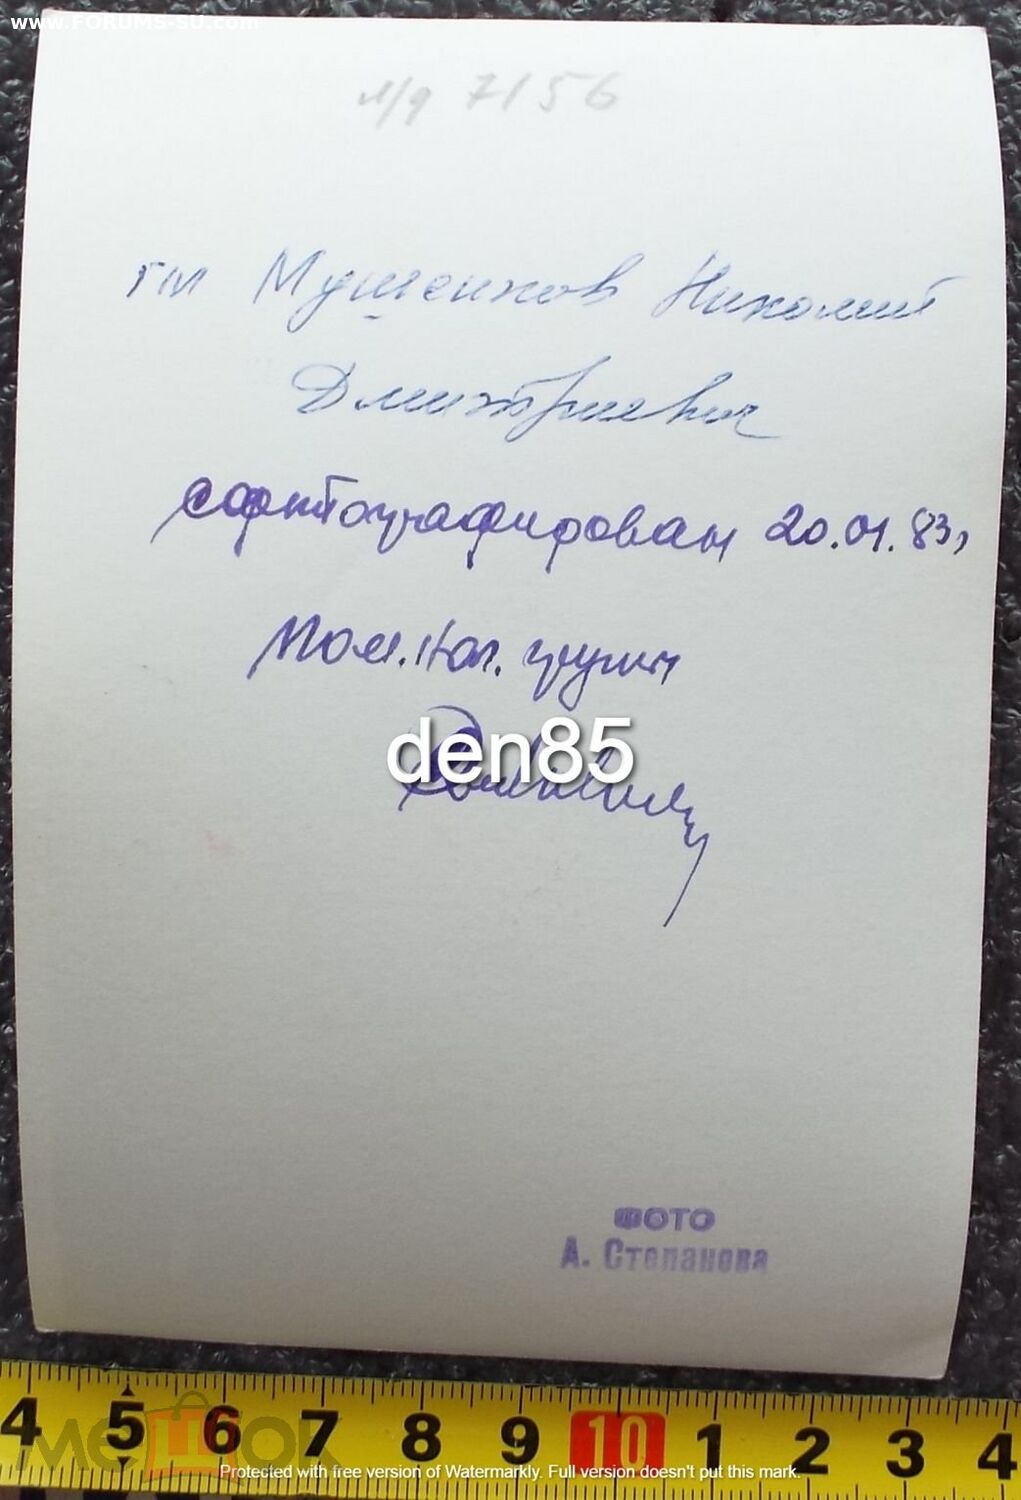 www.FORUMS-SU.com
л/д 7156
гм Мушенков Николай
Дмитриевич
сфотографирован 20.01.83г
Пом. нач. группы
den85
ФОТО
А. Степанова
4 5 6 7 8 9 10 1 2 3 4
мешок
Protected with free version of Watermarkly. Full version doesn't put this mark.